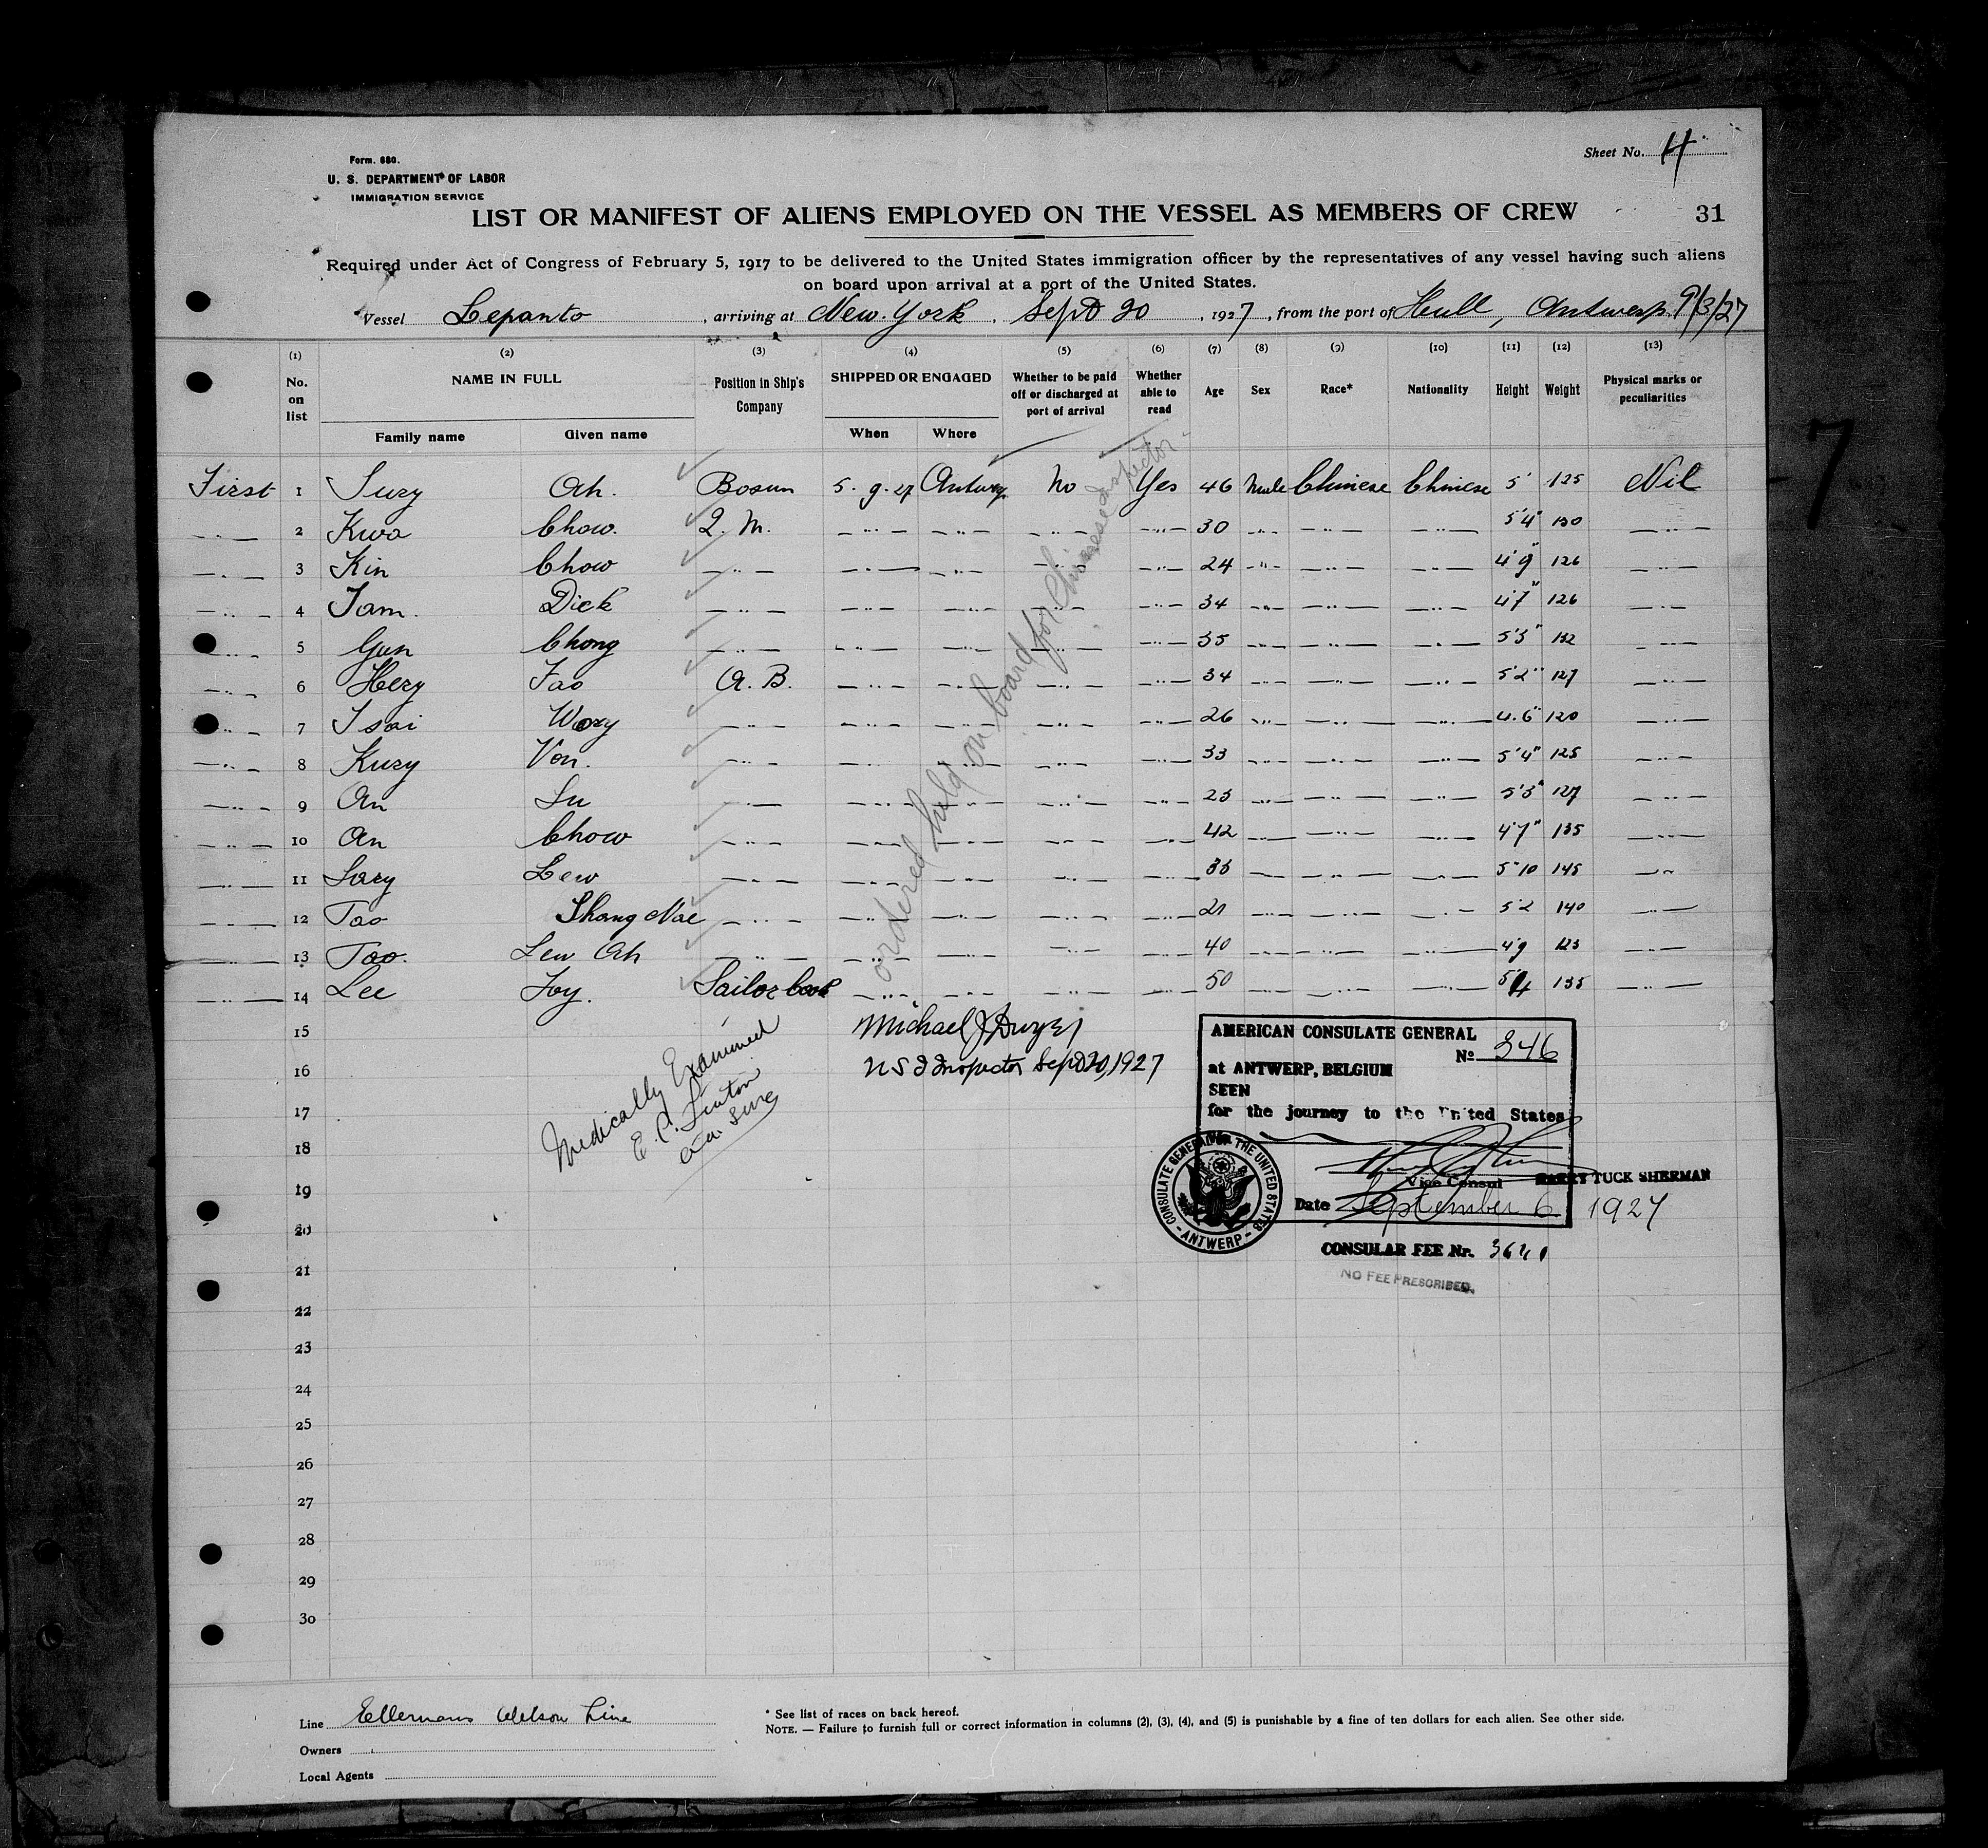 Form. 680.
Sheet No. 4
U. S. DEPARTMENT OF LABOR
IMMIGRATION SERVICE
LIST OR MANIFEST OF ALIENS EMPLOYED ON THE VESSEL AS MEMBERS OF CREW
31
Required under Act of Congress of February 5, 1917 to be delivered to the United States immigration officer by the representatives of any vessel having such aliens
on board upon arrival at a port of the United States.
Vessel Lepanto, arriving at New York, Sept 20, 1927, from the port of Hull, Antwerp 9/3/27
(1) (2) (3) (4) (5) (6) (7) (8) (9) (10) (11) (12) (13)
No. on list NAME IN FULL Family name Given name Position in Ship's Company SHIPPED OR ENGAGED When Where Whether to be paid off or discharged at port of arrival Whether able to read Age Sex Race* Nationality Height Weight Physical marks or peculiarities
First 1 Ah. Bosun 5.9.27 Antwerp No Yes 46 Male Chinese Chinese 5' 125 Nil
2 Kwo Chow. Q. M. 30 5'4" 130
3 Kin Chow 24 4'9" 126
4 Tam. Dick 34 4'7" 126
5 Gun Chong 35 5'3" 132
6 Fao A. B. 34 5'2" 127
7 Tsai 26 4.6" 120
8 Von. 33 5'4" 125
9 An Su 23 5'3" 127
10 An Chow 42 4'7" 135
11 Lew 35 5'10 145
12 Tao 21 5'2 140
13 Tao. Lew Ah 40 4'9 123
14 Lee Foy. Sailor Cook 50 5'4 135
ordered held on board for Chinese Inspector
15
16
17
18
19
20
21
22
23
24
25
26
27
28
29
30
Michael J Dwyer
U S I Inspector Sept 20, 1927
Medically Examined
E. C. Linton
a.a. surg
AMERICAN CONSULATE GENERAL
No 346
at ANTWERP, BELGIUM
SEEN
for the journey to the United States
Vice Consul HARRY TUCK SHERMAN
Date September 6 1927
CONSULATE GENERAL OF THE UNITED STATES - ANTWERP -
CONSULAR FEE Nr. 3641
NO FEE PRESCRIBED.
Line Ellermans Wilson Line
Owners
Local Agents
* See list of races on back hereof.
NOTE. — Failure to furnish full or correct information in columns (2), (3), (4), and (5) is punishable by a fine of ten dollars for each alien. See other side.
7